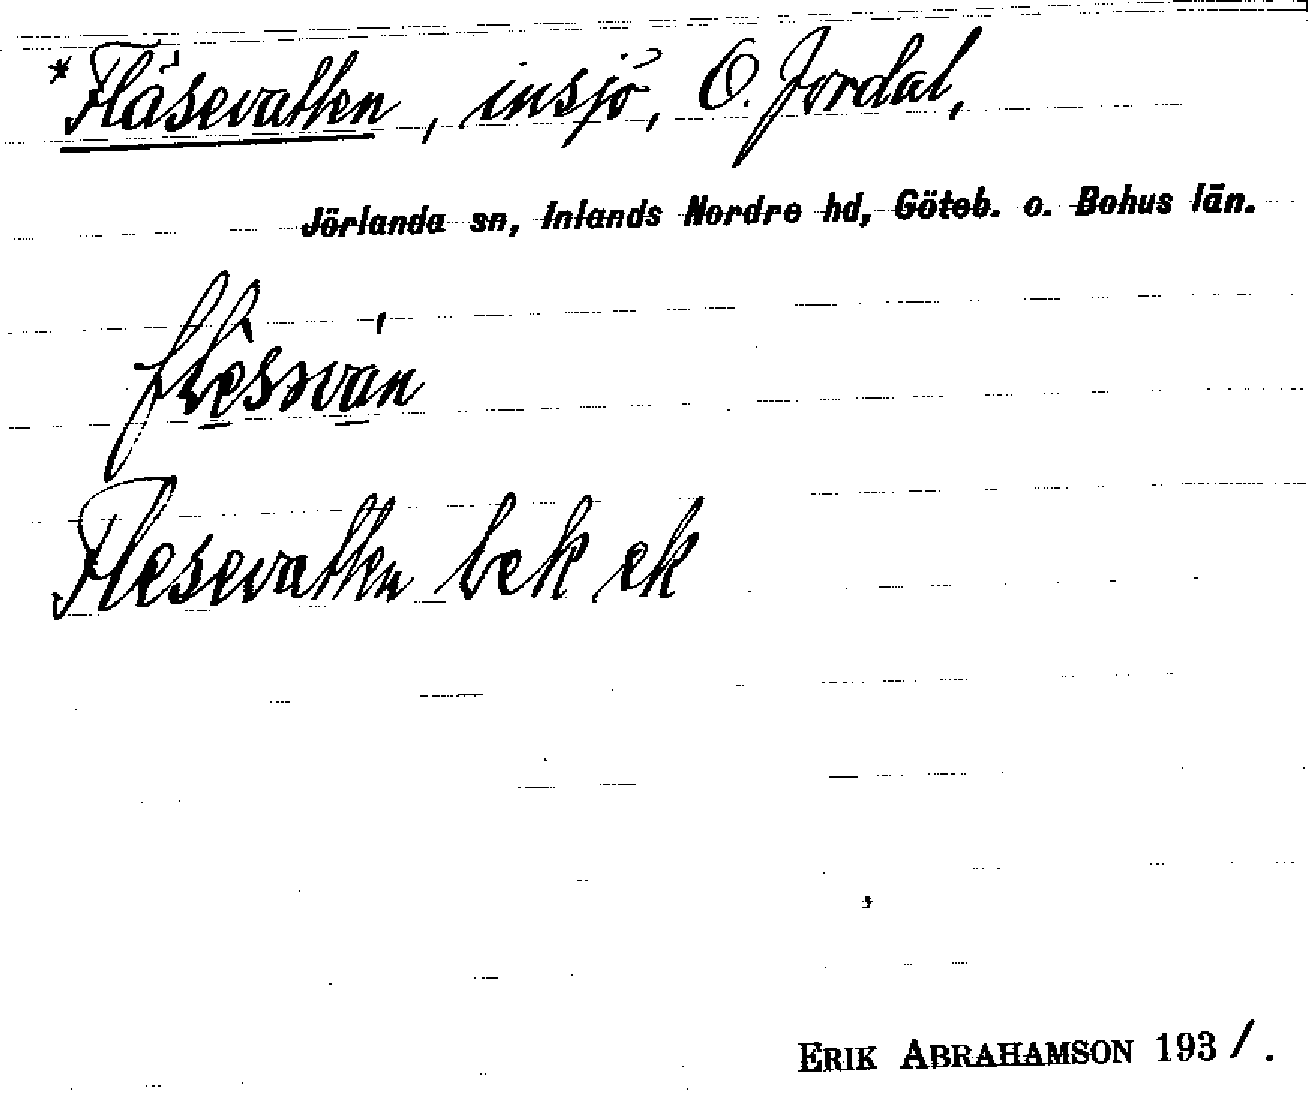 *Fläsevatten, insjö, Ö. Jordal,
Jörlanda sn, Inlands Nordre hd, Göteb. o. Bohus län.
flèssván
Flesevatten bek ek
ERIK ABRAHAMSON 1931.